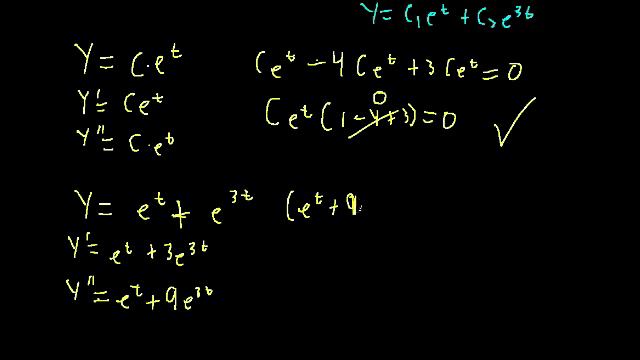 Y = C₁eᵗ + C₂e³ᵗ
Y = C·eᵗ
Ceᵗ - 4Ceᵗ + 3Ceᵗ = 0
Y' = Ceᵗ
0
Ceᵗ(1 - 4 + 3) = 0 ✓
Y'' = C·eᵗ
Y = eᵗ + e³ᵗ (eᵗ + 9
Y' = eᵗ + 3e³ᵗ
Y'' = eᵗ + 9e³ᵗ